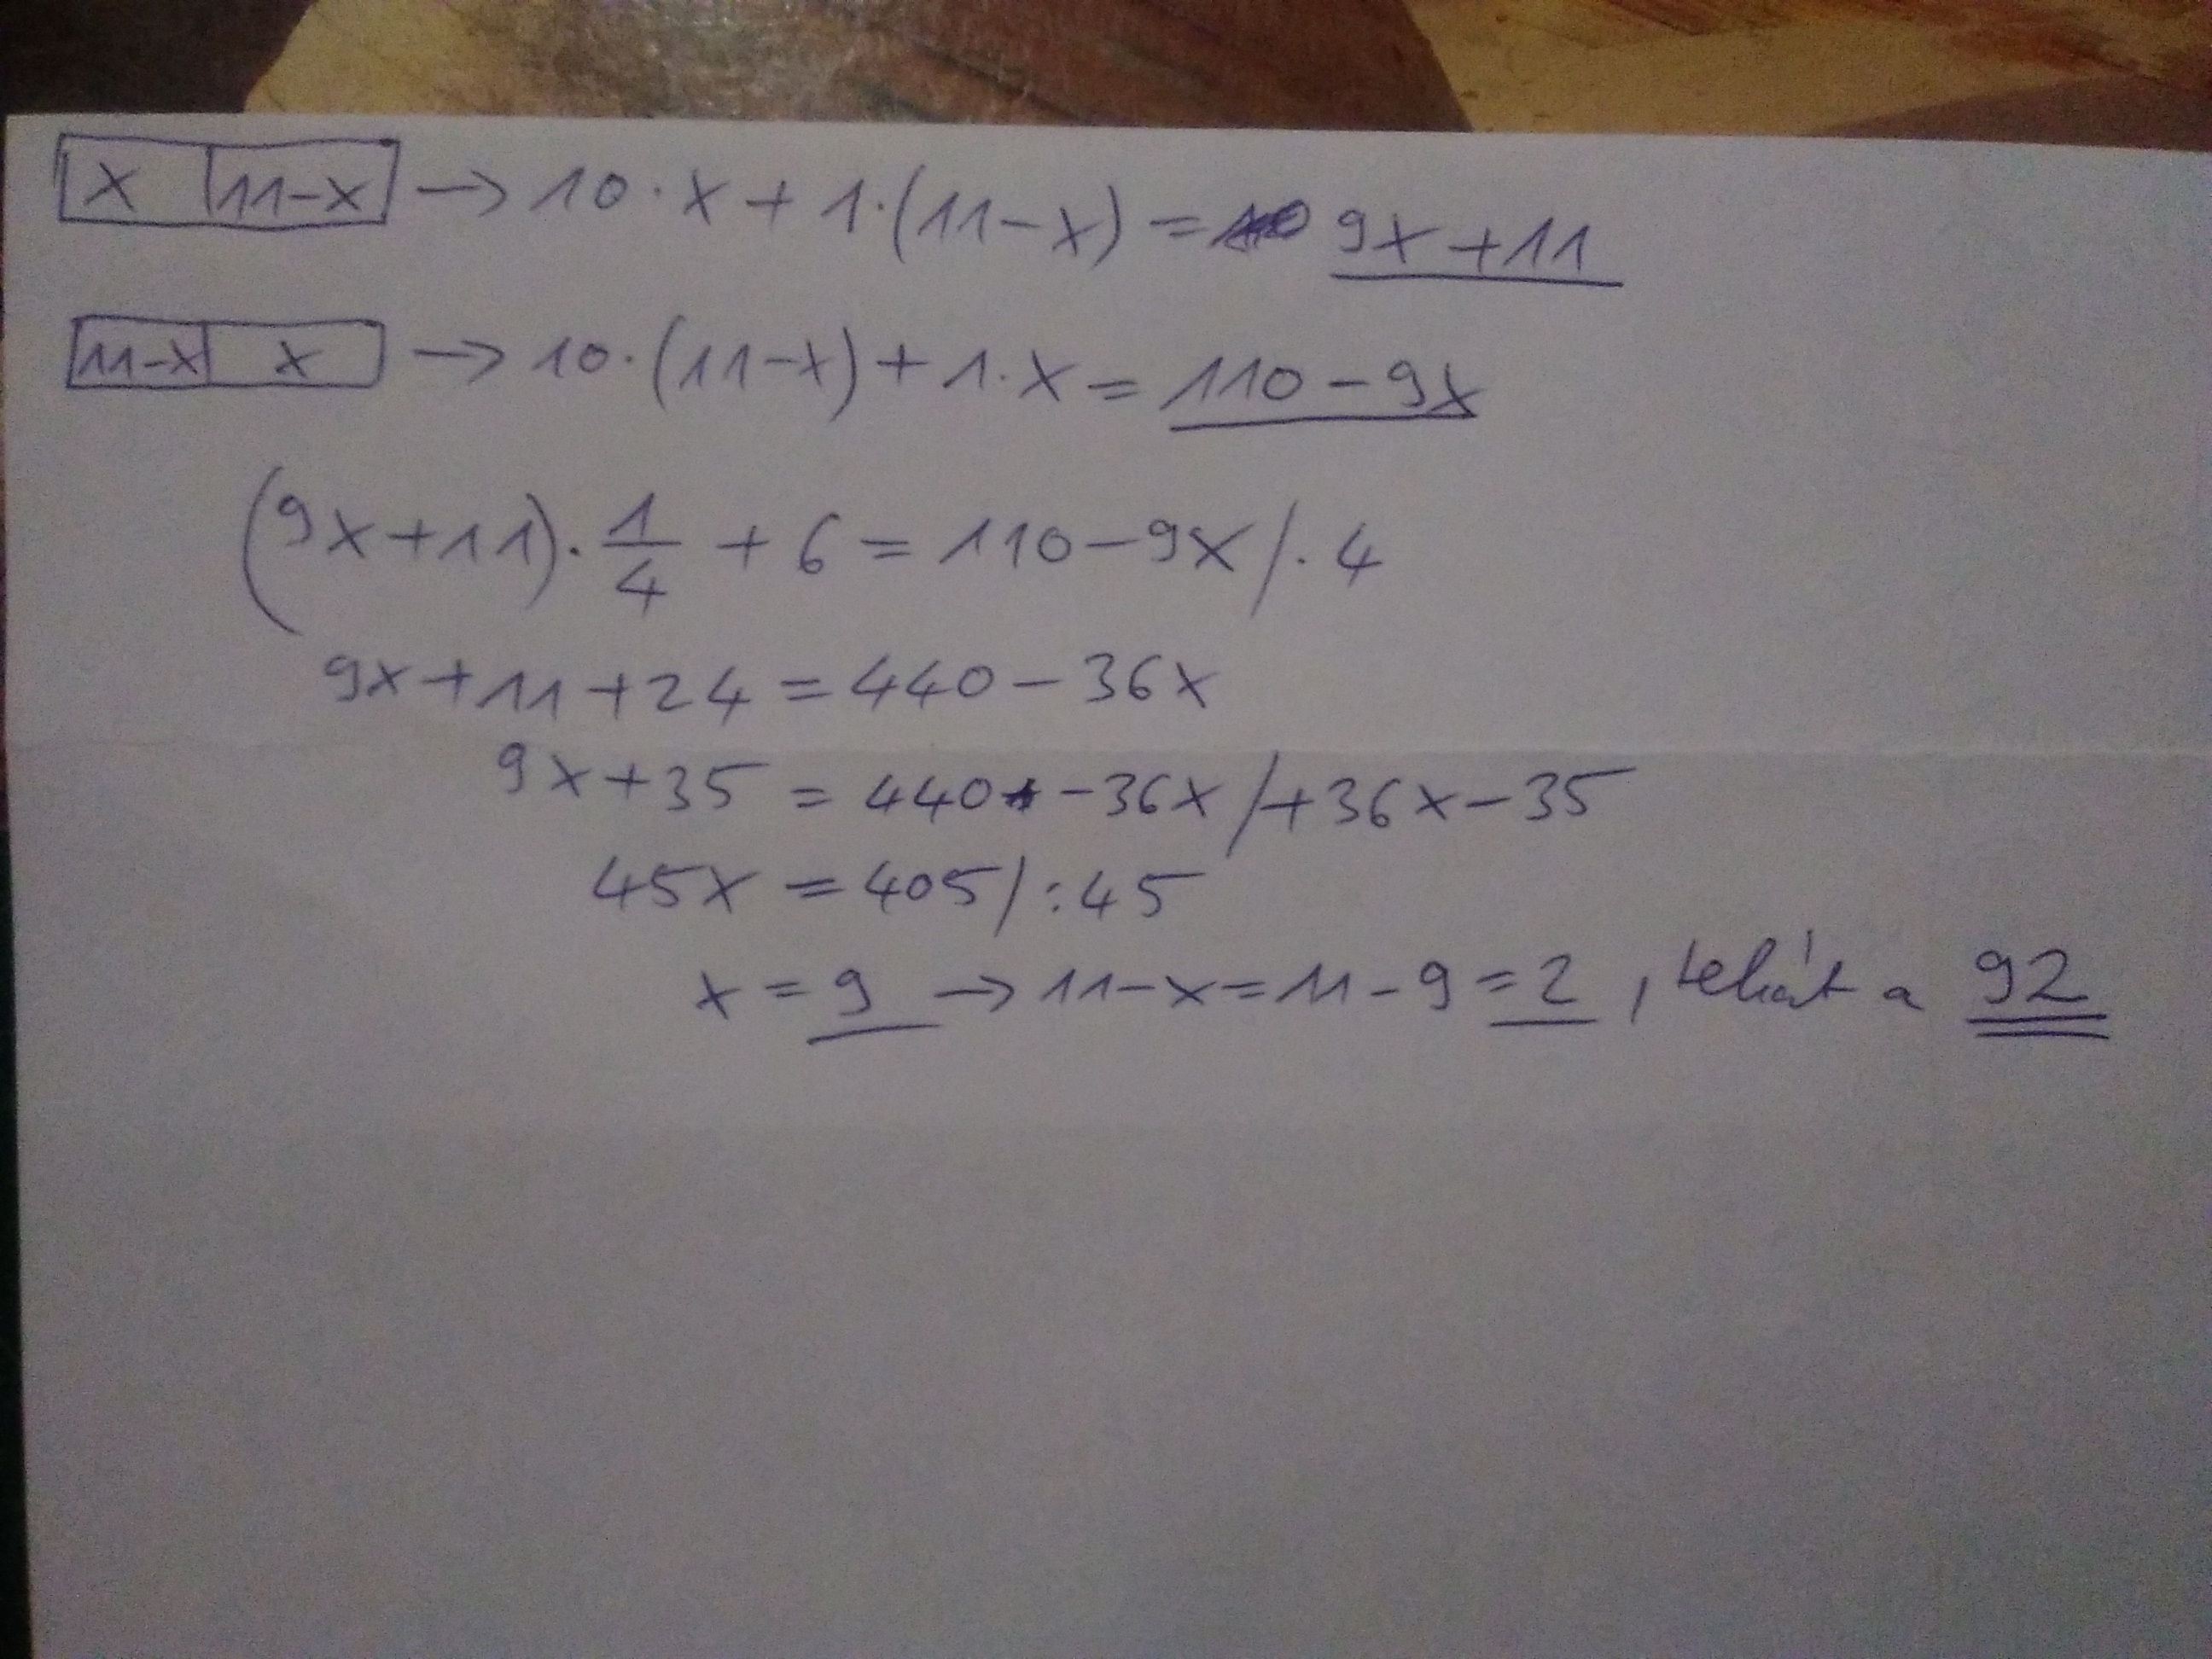 x | 11-x → 10·x+1·(11-x)= 9x+11
11-x | x → 10·(11-x)+1·x=110-9x
(9x+11)·1/4+6=110-9x/·4
9x+11+24=440-36x
9x+35=440-36x/+36x-35
45x=405/:45
x=9→11-x=11-9=2, tehát a 92